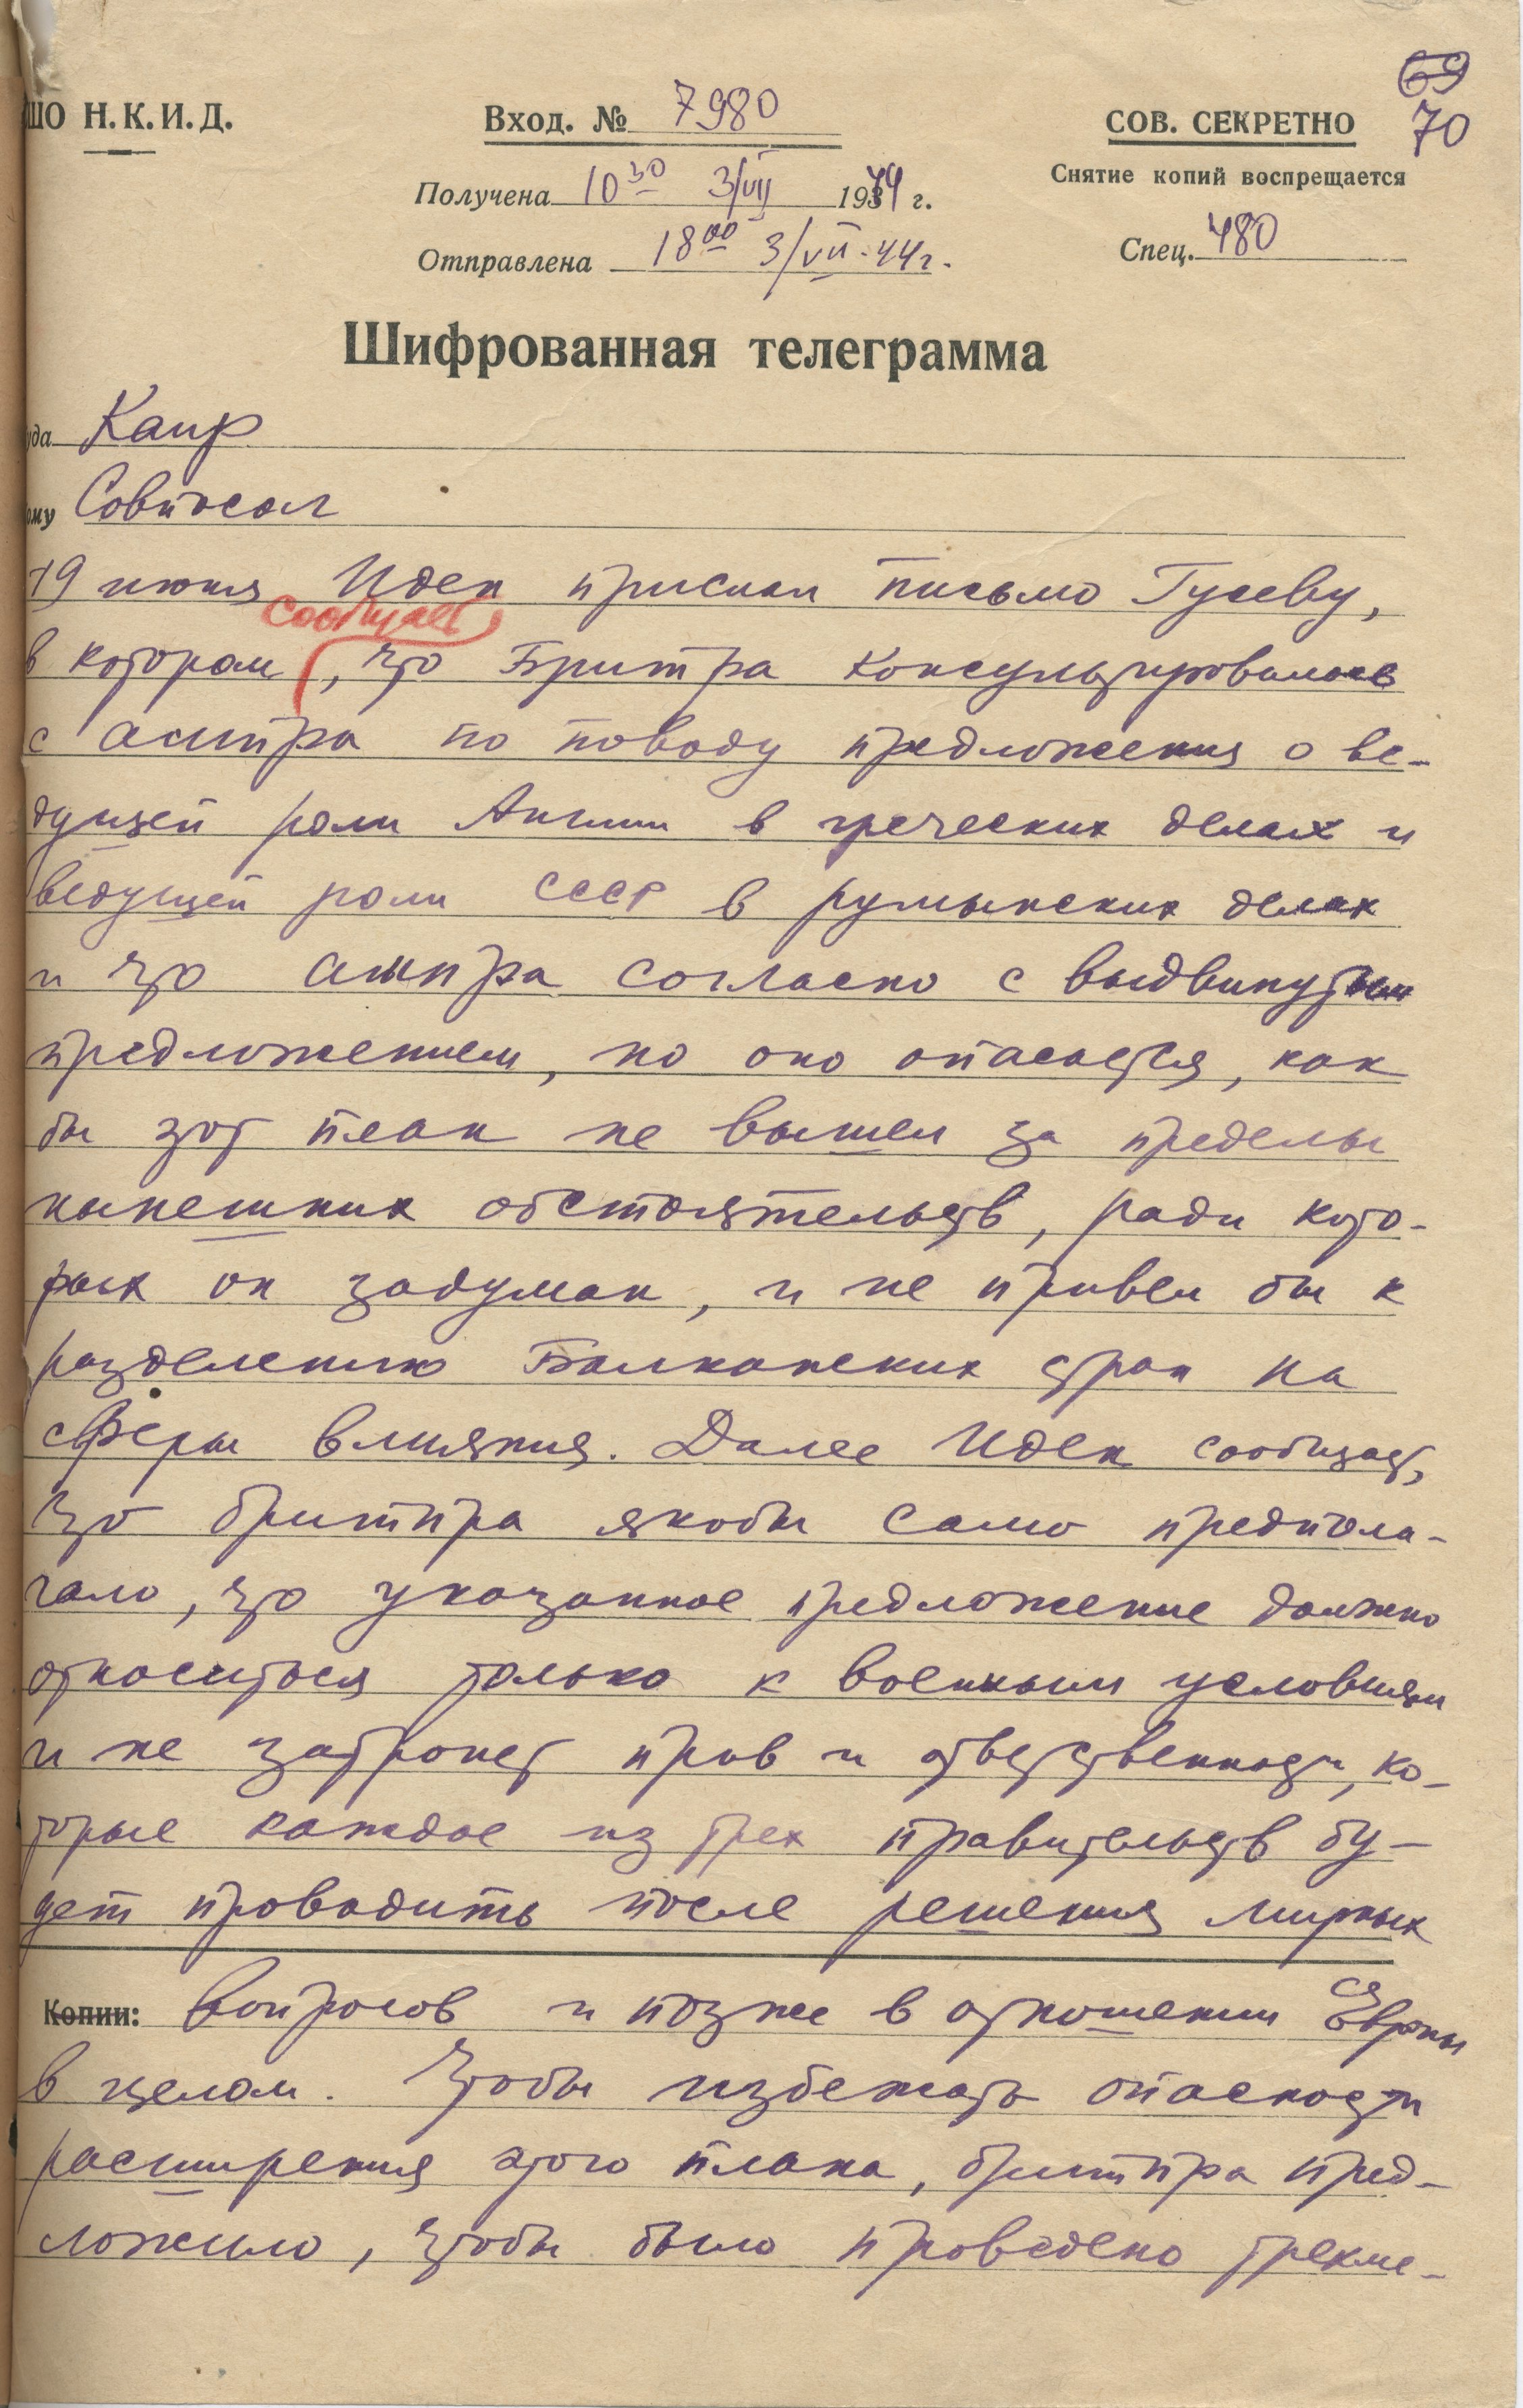 69
70
ШО Н.К.И.Д.
Вход. № 7980
СОВ. СЕКРЕТНО
Снятие копий воспрещается
Получена 10 30 3/VII 1944 г.
Отправлена 18 00 3/VII-44г.
Спец. 480
Шифрованная телеграмма
уда Каир
ому Совпосол
19 июня Иден прислал письмо Гусеву,
сообщает
в котором, что Бритпра консультировалось
с ампра по поводу предложения о ве-
дущей роли Англии в греческих делах и
ведущей роли СССР в румынских делах
и что ампра согласно с выдвинутым
предложением, но оно опасается, как
бы этот план не вышел за пределы
нынешних обстоятельств, ради кото-
рых он задуман, и не привел бы к
разделению Балканских стран на
сферы влияния. Далее Иден сообщает,
что бритпра якобы само предпола-
гало, что указанное предложение должно
относиться только к военным условиям
и не затронет прав и ответственности, ко-
торые каждое из трех правительств бу-
дет проводить после решения мирных
Копии: вопросов и позже в отношении Европы
в целом. Чтобы избежать опасности
расширения этого плана, бритпра пред-
ложило, чтобы было проведено трехме-